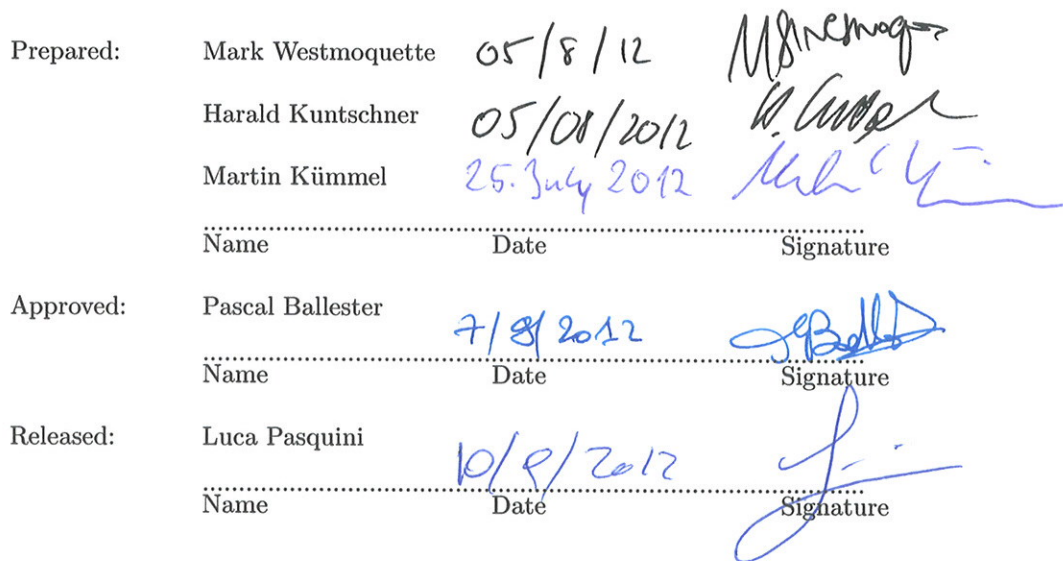 Prepared: Mark Westmoquette 05/8/12
Harald Kuntschner 05/08/2012
Martin Kümmel 25. July 2012
Name Date Signature
Approved: Pascal Ballester 7/8/2012
Name Date Signature
Released: Luca Pasquini 2012
Name Date Signature